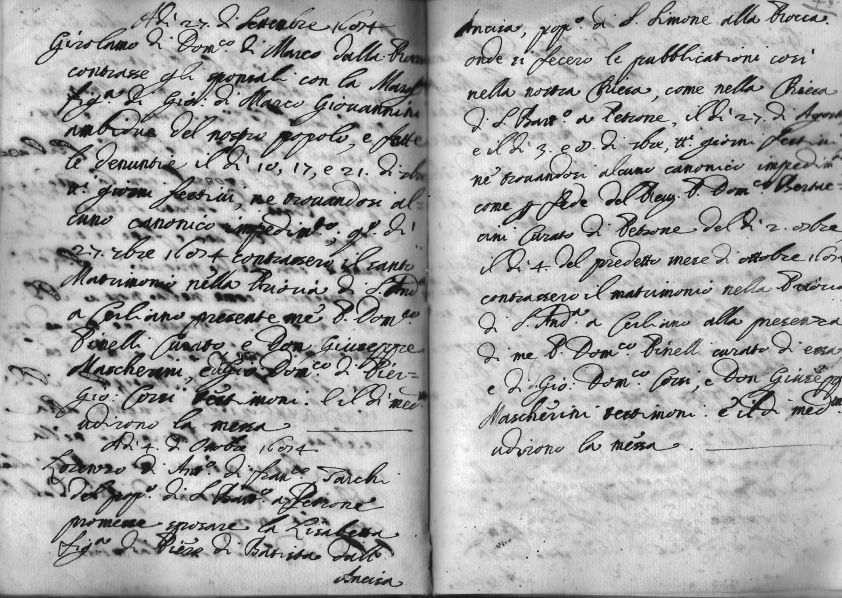 Adi 27. di Settembre 1674
Girolamo di Dom.co di Marco dalla
contrasse gli sponsali con la
fig.a di Gio: di Marco Giovannini
ambidue del nostro popolo, e fatte
le denuntie il dì 10, 17, e 21. di 7bre
giorni festivi, ne trovandosi al=
cuno canonico impedim.to, q.o dì
27. 7bre 1674 contrassero il santo
Matrimonio nella Prioria di S. And.a
a Cerliano presente me P. Dom.co
Pinelli Curato, e Don Giuseppe
Mascherini, e Dom.co di Pier=
Gio: Corsi testimoni. e il dì med.mo
udirono la messa
Adi 4. di Ottobre 1674
Lorenzo di Ant.o di Fran.co Tarchi
del pop.o di S. Bart.o a Petrone
promesse sposare la Lisabetta
fig.a di Piero di Batista dall'
Ancisa
Ancisa, pop.o di S. Simone alla Rocca.
onde si fecero le pubblicationi così
nella nostra Chiesa, come nella Chiesa
di S. Bart.o a Petrone, il dì 27. di Agosto
e il dì 3. e 8. di 7bre, giorni festivi
ne trovandosi alcuno canonico impedim.
come p fede del Rev. P. Dom.co Bertuc=
cini Curato di Petrone del dì 2. 8bre
il dì 4. del predetto mese di ottobre 1674
contrassero il matrimonio nella Prioria
di S. And.a a Cerliano alla presenza
di me P. Dom.co Pinelli curato di essa
e di Gio: Dom.co Corsi, e Don Giuseppe
Mascherini testimoni. e il dì med.mo
udirono la messa.